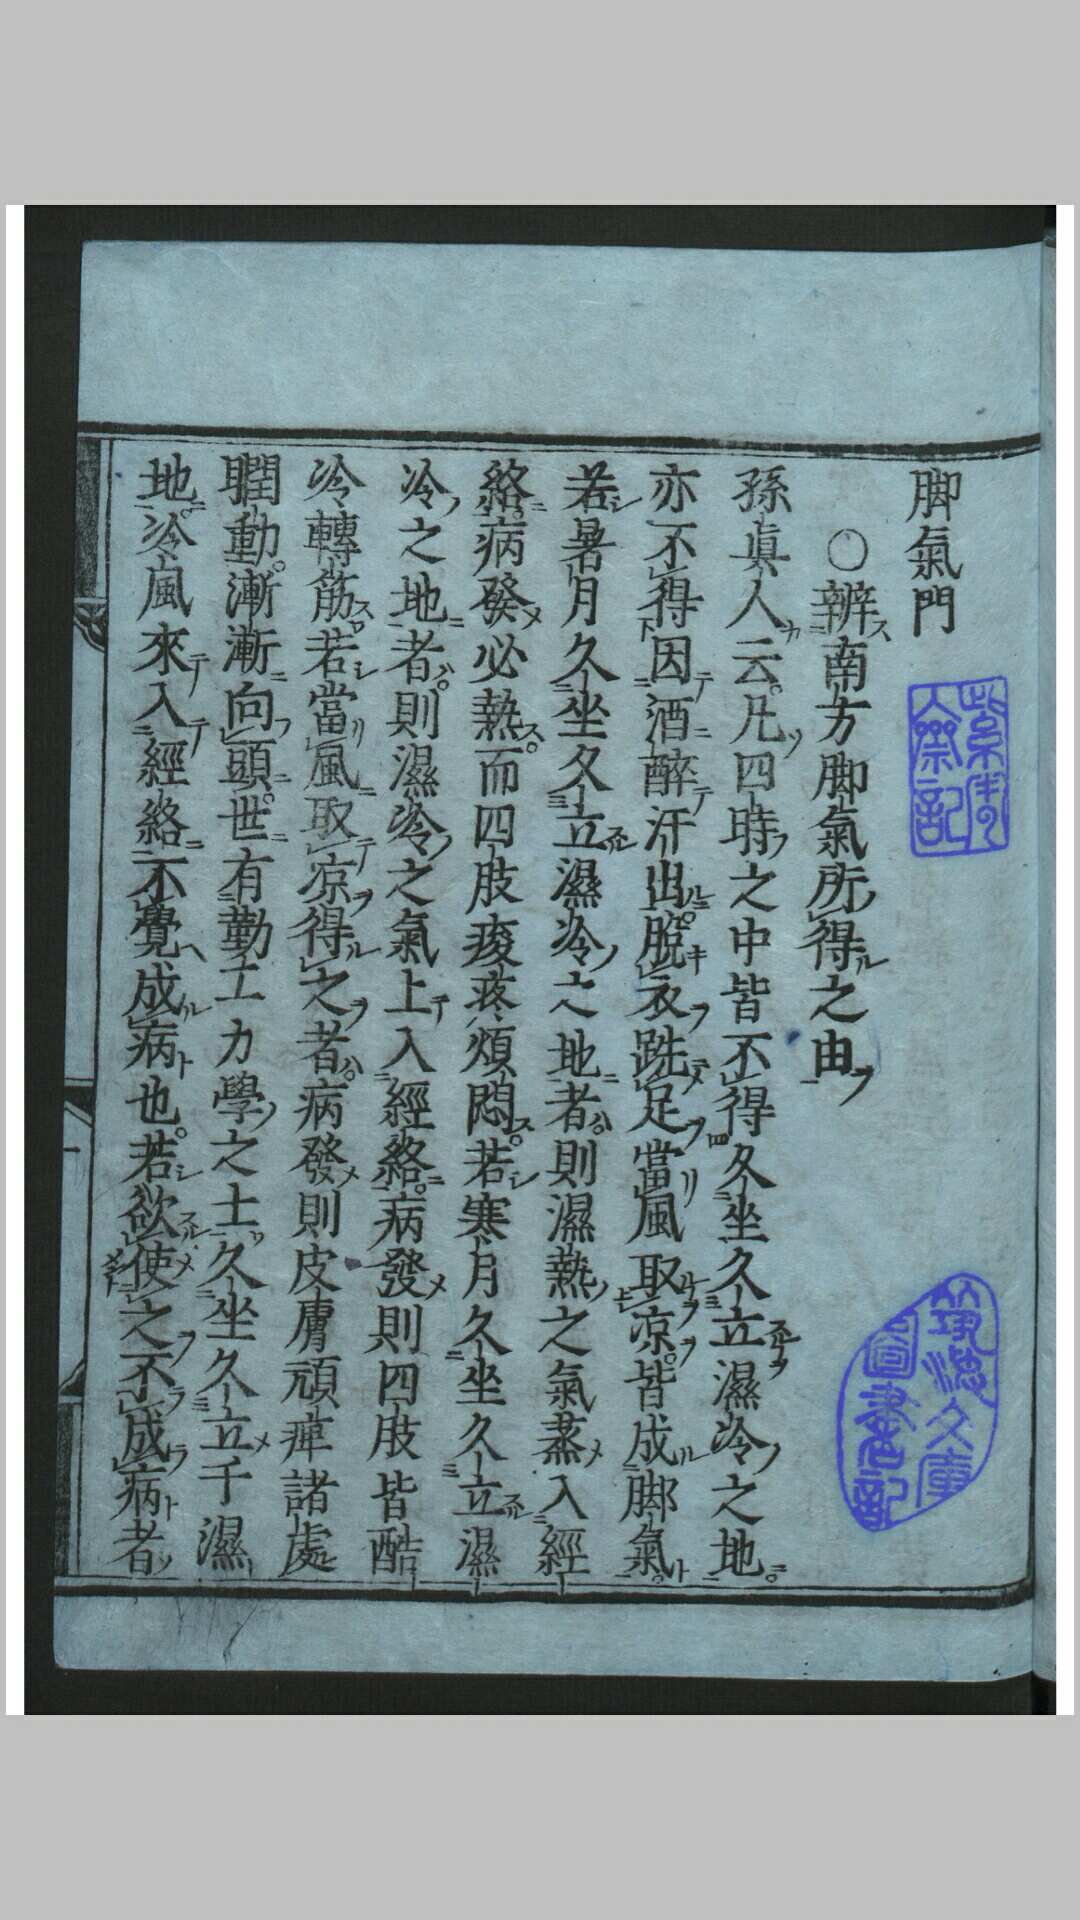 脚氣門
○辨南方脚氣所得之由
孫眞人云凡四時之中皆不得久坐久立濕冷之地
亦不得因酒醉汗出脫衣跣足當風取凉皆成脚氣
若暑月久坐久立濕冷之地者則濕熱之氣蒸入經
絡病發必熱而四肢痠疼煩悶若寒月久坐久立濕
冷之地者則濕冷之氣上入經絡病發則四肢皆酷
冷轉筋若當風取凉得之者病發則皮膚頑痺諸處
瞤動漸漸向頭世有勤工力學之士久坐久立千濕
地冷風來入經絡不覺成病也若欲使之不成病者